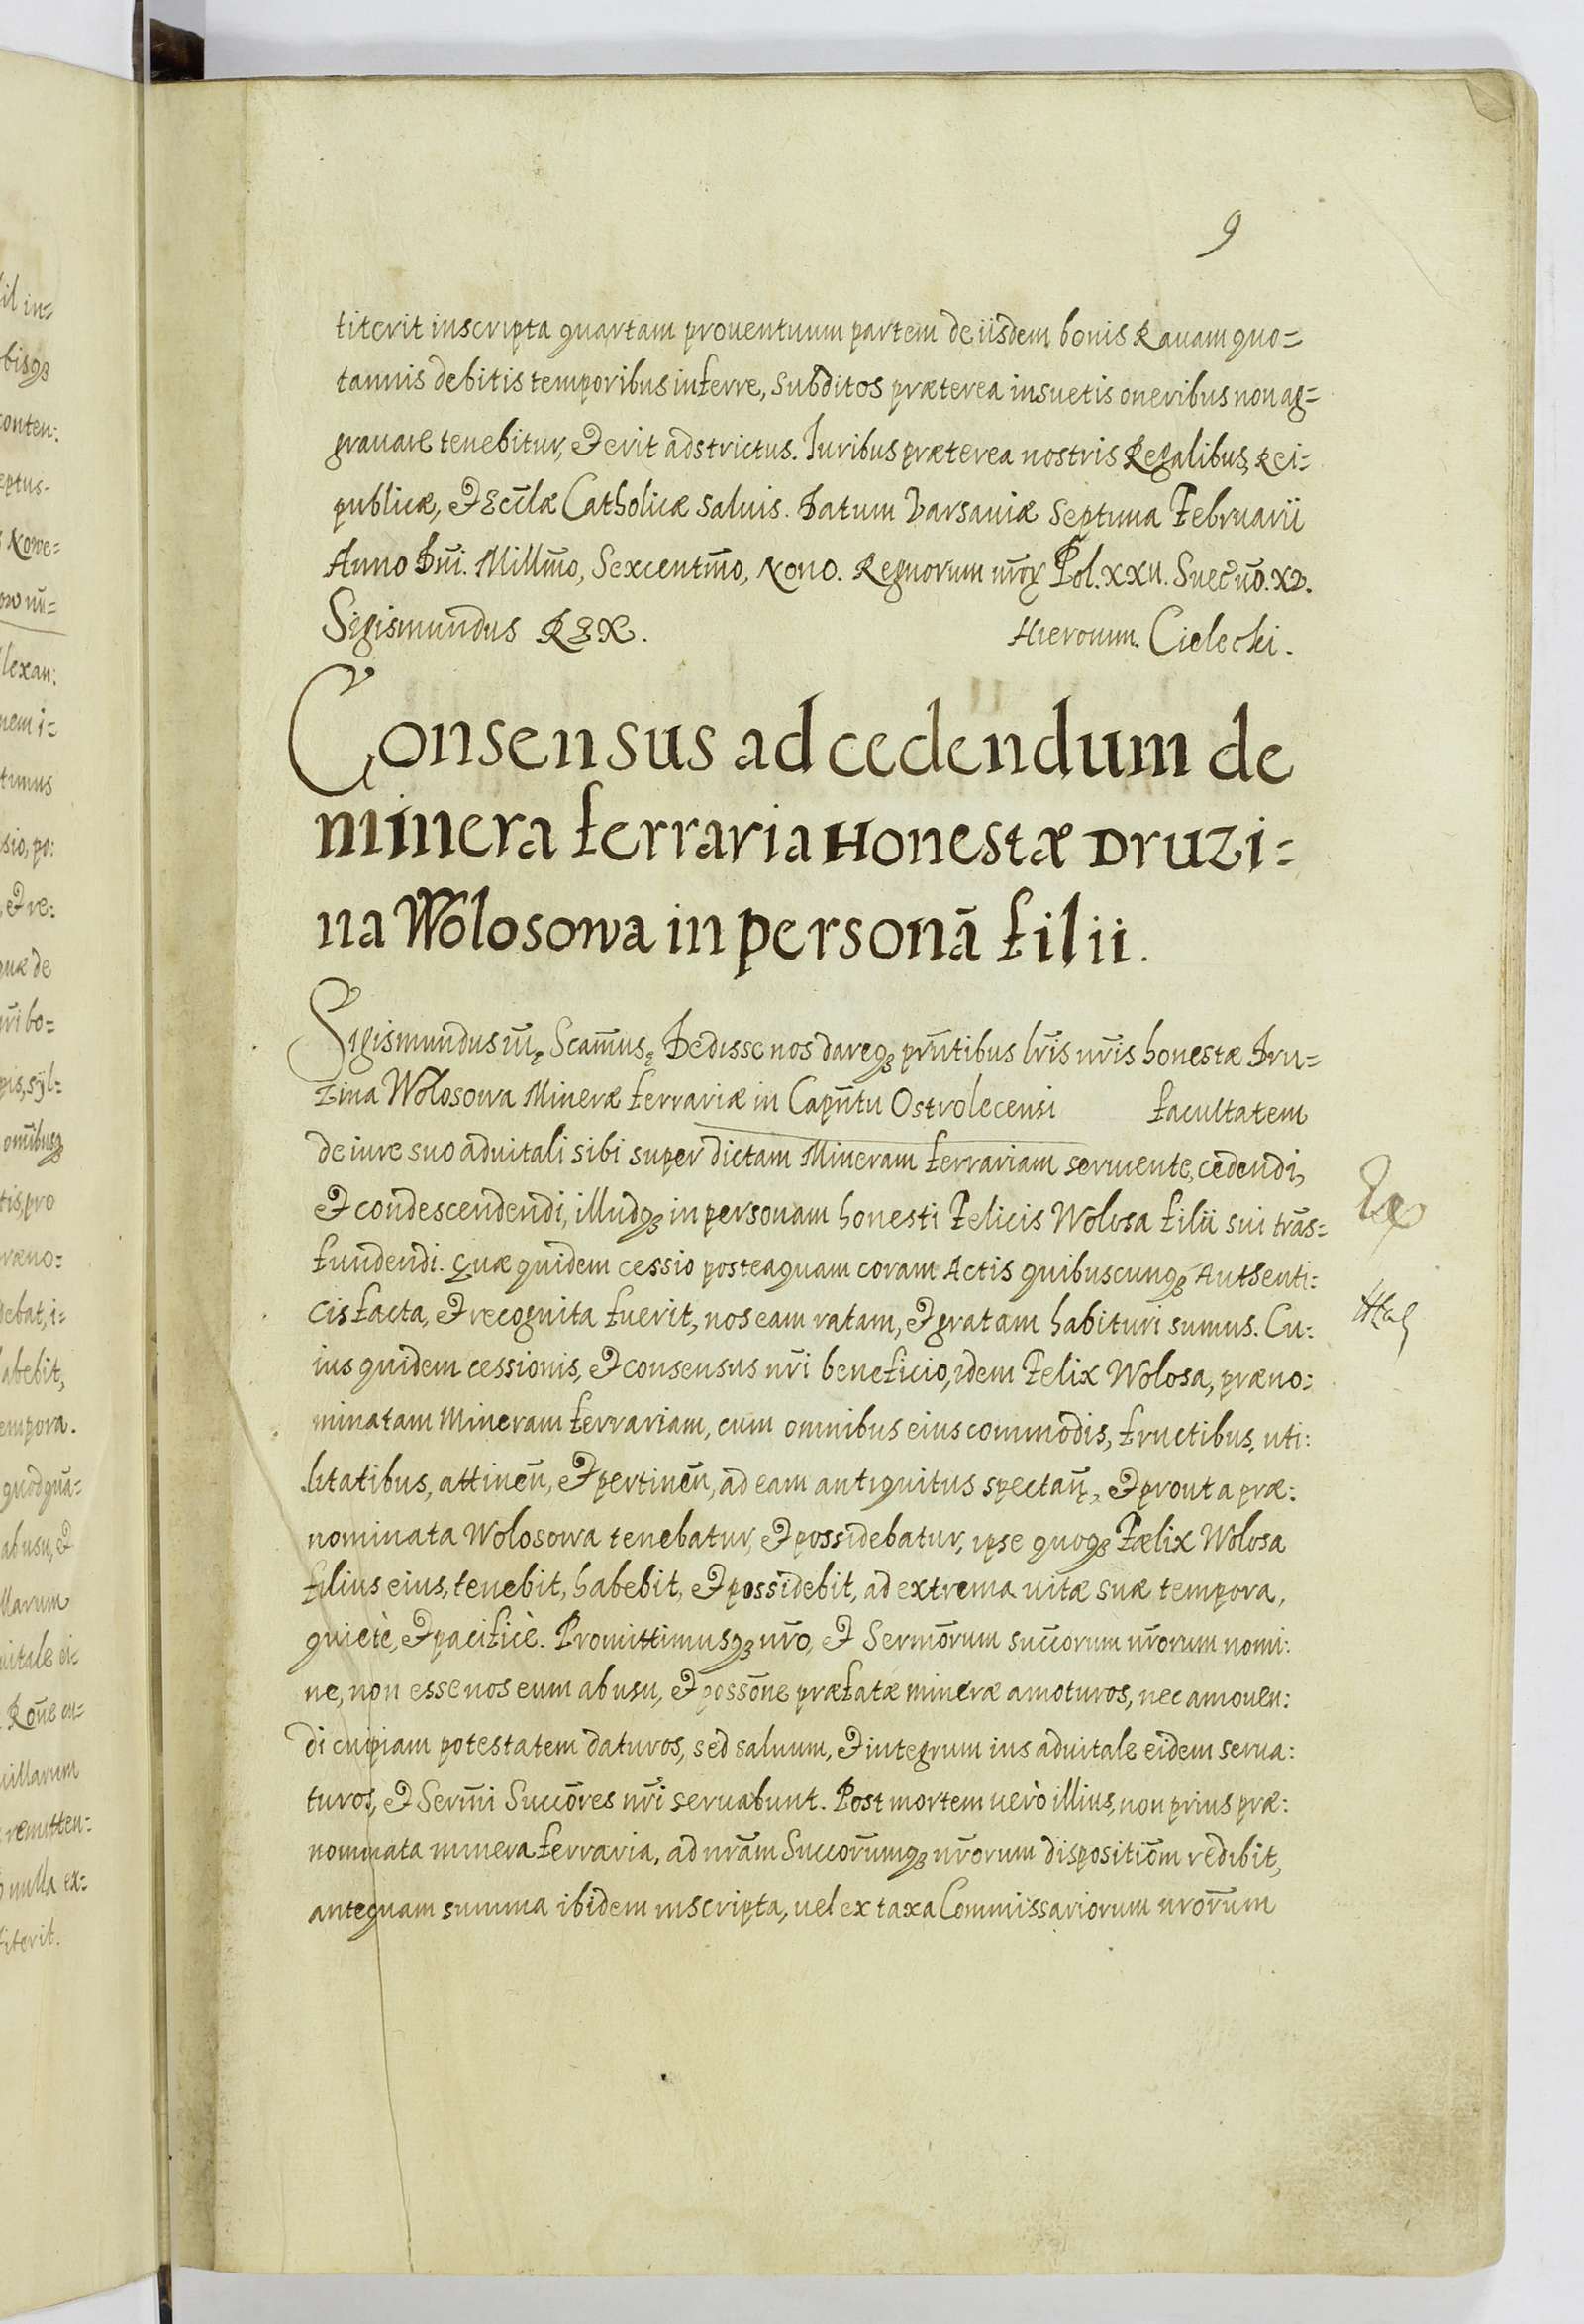 9
titerit inscripta quartam prouentuum partem de iisdem bonis Rauam quo=
tannis debitis temporibus inferre, subditos præterea insuetis oneribus non ag=
grauare tenebitur, et erit adstrictus. Iuribus præterea nostris Regalibus, Rei=
publicæ, et Eccłæ Catholicæ saluis. Datum Varsauiæ Septima Februarii
Anno Dni. Millmo, Sexcentmo, Nono. Regnorum nroꝝ Pol. XXII. Suec. uo. XV.
Sigismundus REX. Hieronim. Cielecki.
Consensus ad cedendum de
minera ferraria Honestæ Druzi=
na Wolosowa in personā filii.
Sigismundus iii, Scamus, Dedisse nos dareqꝫ prntibus lris nris honestæ Dru=
zina Wolosowa Mineræ ferrariæ in Capntu Ostrolecensi facultatem
de iure suo aduitali sibi super dictam Mineram ferrariam seruiente, cedendi,
et condescendendi, illudqꝫ in personam honesti Felicis Wolosa filii sui trās=
fundendi. Quæ quidem cessio posteaquam coram Actis quibuscunqꝫ Authenti:
cis facta, et recognita fuerit, nos eam ratam, et gratam habituri sumus. Cu:
ius quidem cessionis, et consensus nri beneficio, idem Felix Wolosa, præno:
minatam Mineram ferrariam, cum omnibus eius commodis, fructibus, uti:
litatibus, attineñ, et pertineñ, ad eam antiquitus spectañ, et prout a præ:
nominata Wolosowa tenebatur, et possidebatur, ipse quoqꝫ Fælix Wolosa
filius eius, tenebit, habebit, et possidebit, ad extrema uitæ suæ tempora,
quietè, et pacificè. Promittimusqꝫ nro, et Sermorum succorum nrorum nomi:
ne, non esse nos eum ab usu, et possone præfatæ mineræ amoturos, nec amouen:
di cuipiam potestatem daturos, sed saluum, et integrum ius aduitale eidem serua:
turos, et Sermi Succores nri seruabunt. Post mortem uerò illius, non prius præ:
nominata minera ferraria, ad nram Succorumqꝫ nrorum dispositiom redibit,
antequam summa ibidem inscripta, uel ex taxa Commissariorum nrorum